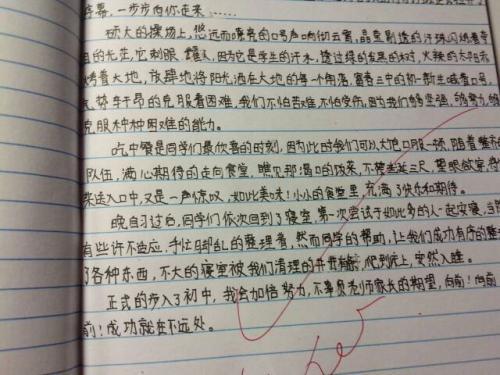 序幕,一步步向你走来……
硕大的操场上,悠远而嘹亮的口号声响彻云霄,晶莹剔透的汗珠闪烁着
目的光芒,它刺眼,耀人,因为它是学生的汗水,透过绿的发黑的树,火辣的太阳
烤着大地,放肆地将阳光洒在大地的每个角落,富春三中的初一新生喊着口号,
气势轩昂的克服着困难,我们不怕苦难不怕受伤,因为我们够坚强,能
克服种种困难的能力。
吃中餐是同学们最欣喜的时刻,因为此时我们可以大饱口服一顿,随着
队伍,满心期待的走向食堂,瞧见那满口的饭菜,不禁垂涎三尺,狼吞虎咽,
来送入口中,又是一声惊叹,如此美味!小小的食堂里,充满了快乐和期待。
晚自习过后,同学们依次回到了寝室,第一次尝试于如此多的人一起安寝,
有些许不适应,手忙脚乱的整理着,然而同学的帮助,让我们成功有序的整
了各种东西,不大的寝室被我们清理的井井有条,爬到床上,安然入睡。
正式的步入了初中,我会加倍努力,不辜负老师家长的期望,向前!向前
前!成功就在不远处。